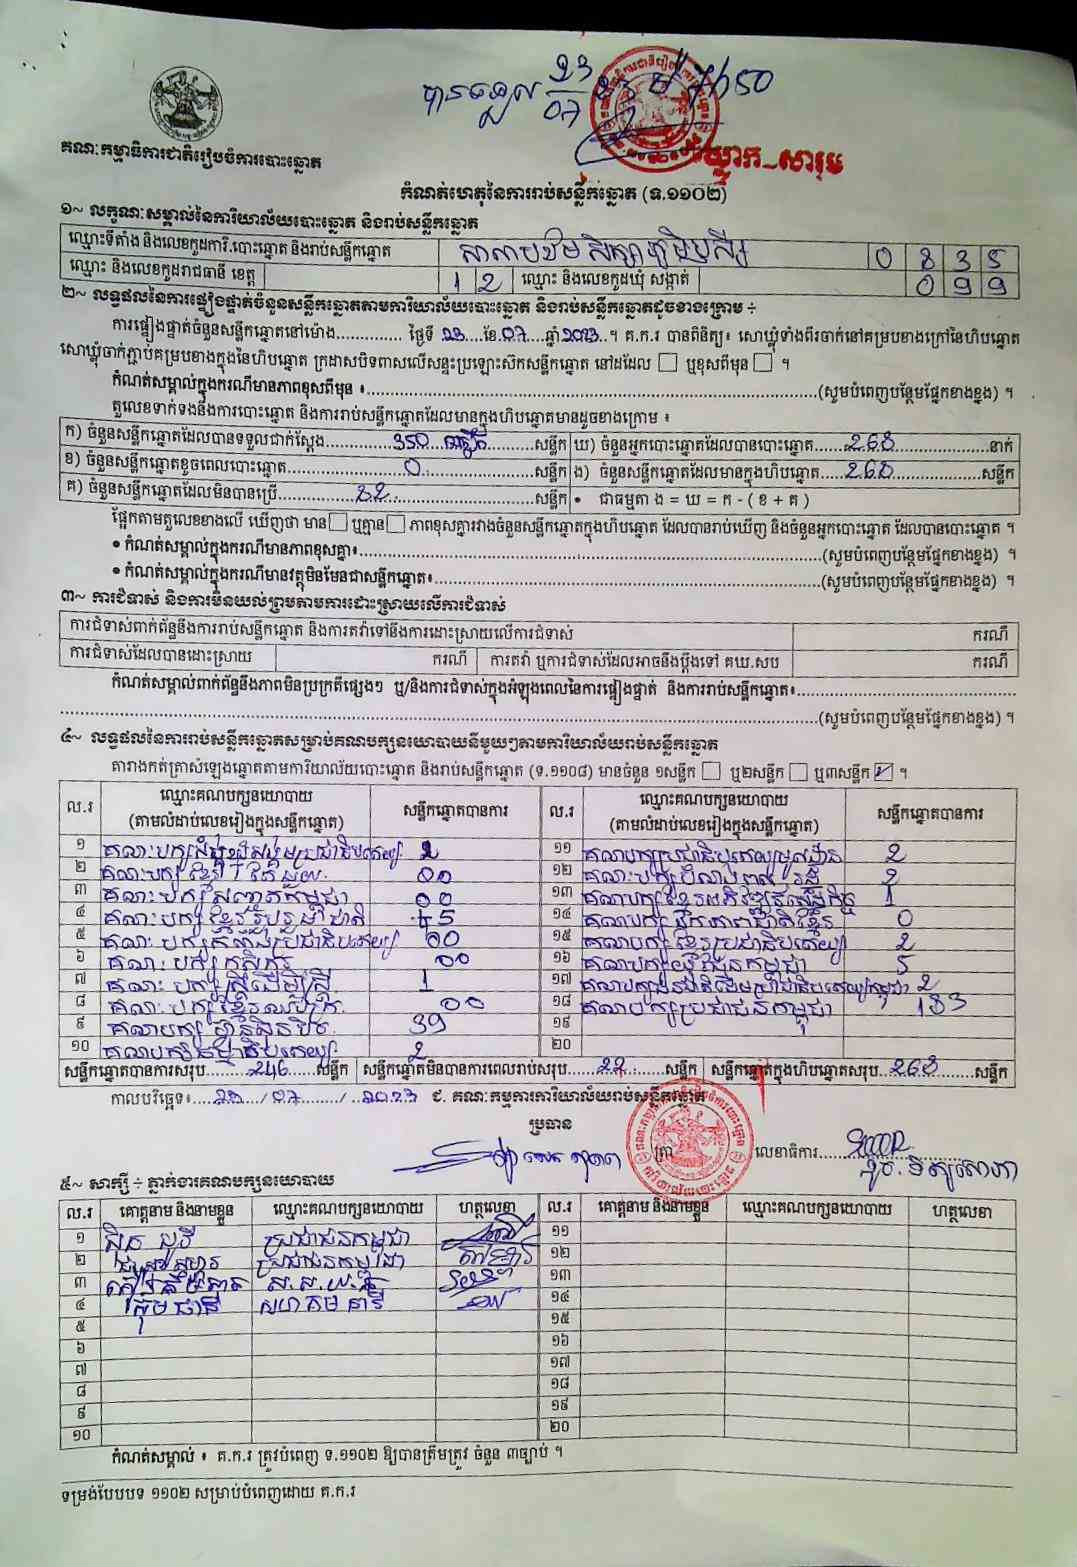 បានឃើញ 23 07
គណៈកម្មាធិការជាតិរៀបចំការបោះឆ្នោត
ឃ្លោក-សារុម
កំណត់ហេតុនៃការរាប់សន្លឹកឆ្នោត (ទ.១១០២)
១~ លក្ខណៈសម្គាល់នៃការិយាល័យបោះឆ្នោត និងរាប់សន្លឹកឆ្នោត
ឈ្មោះទីតាំង និងលេខកូដការិ.បោះឆ្នោត និងរាប់សន្លឹកឆ្នោត 0 8 3 5
ឈ្មោះ និងលេខកូដរាជធានី ខេត្ត 1 2 ឈ្មោះ និងលេខកូដឃុំ សង្កាត់ 0 9 9
២~ លទ្ធផលនៃការផ្ទៀងផ្ទាត់ចំនួនសន្លឹកឆ្នោតតាមការិយាល័យបោះឆ្នោត និងរាប់សន្លឹកឆ្នោតដូចខាងក្រោម ÷
ការផ្ទៀងផ្ទាត់ចំនួនសន្លឹកឆ្នោតនៅម៉ោង.............. ថ្ងៃទី 23 ខែ 07 ឆ្នាំ 2023 ។ គ.ក.រ បានពិនិត្យ៖ សោឃ្លុំទាំងពីរចាក់នៅគម្របខាងក្រៅនៃហិបឆ្នោត
សោឃ្លុំចាក់ភ្ជាប់គម្របខាងក្នុងនៃហិបឆ្នោត ក្រដាសបិទពាសលើសន្ទះប្រឡោះស៊កសន្លឹកឆ្នោត នៅដដែល ☐ ឬខុសពីមុន ☐ ។
កំណត់សម្គាល់ក្នុងករណីមានភាពខុសពីមុន ៖..............(សូមបំពេញបន្ថែមផ្នែកខាងខ្នង) ។
តួលេខទាក់ទងនឹងការបោះឆ្នោត និងការរាប់សន្លឹកឆ្នោតដែលមានក្នុងហិបឆ្នោតមានដូចខាងក្រោម ៖
ក) ចំនួនសន្លឹកឆ្នោតដែលបានទទួលជាក់ស្តែង 350 សន្លឹក ឃ) ចំនួនអ្នកបោះឆ្នោតដែលបានបោះឆ្នោត 268 នាក់
ខ) ចំនួនសន្លឹកឆ្នោតខូចពេលបោះឆ្នោត 0 សន្លឹក ង) ចំនួនសន្លឹកឆ្នោតដែលមានក្នុងហិបឆ្នោត 268 សន្លឹក
គ) ចំនួនសន្លឹកឆ្នោតដែលមិនបានប្រើ 82 សន្លឹក • ជាធម្មតា ង = ឃ = ក - ( ខ + គ )
ផ្អែកតាមតួលេខខាងលើ ឃើញថា មាន☐ ឬគ្មាន☐ ភាពខុសគ្នារវាងចំនួនសន្លឹកឆ្នោតក្នុងហិបឆ្នោត ដែលបានរាប់ឃើញ និងចំនួនអ្នកបោះឆ្នោត ដែលបានបោះឆ្នោត ។
• កំណត់សម្គាល់ក្នុងករណីមានភាពខុសគ្នា៖..............(សូមបំពេញបន្ថែមផ្នែកខាងខ្នង) ។
• កំណត់សម្គាល់ក្នុងករណីមានវត្ថុមិនមែនជាសន្លឹកឆ្នោត៖..............(សូមបំពេញបន្ថែមផ្នែកខាងខ្នង) ។
៣~ ការជំទាស់ និងការមិនយល់ព្រមតាមការដោះស្រាយលើការជំទាស់
ការជំទាស់ពាក់ព័ន្ធនឹងការរាប់សន្លឹកឆ្នោត និងការតវ៉ាទៅនឹងការដោះស្រាយលើការជំទាស់ ករណី
ការជំទាស់ដែលបានដោះស្រាយ ករណី ការតវ៉ា ឬការជំទាស់ដែលអាចនឹងប្តឹងទៅ គឃ.សប ករណី
កំណត់សម្គាល់ពាក់ព័ន្ធនឹងភាពមិនប្រក្រតីផ្សេងៗ ឬ/និងការជំទាស់ក្នុងអំឡុងពេលនៃការផ្ទៀងផ្ទាត់ និងការរាប់សន្លឹកឆ្នោត៖..............
..............(សូមបំពេញបន្ថែមផ្នែកខាងខ្នង) ។
៤~ លទ្ធផលនៃការរាប់សន្លឹកឆ្នោតសម្រាប់គណបក្សនយោបាយនីមួយៗតាមការិយាល័យរាប់សន្លឹកឆ្នោត
តារាងកត់ត្រាសំឡេងឆ្នោតតាមការិយាល័យបោះឆ្នោត និងរាប់សន្លឹកឆ្នោត (ទ.១១០៨) មានចំនួន ១សន្លឹក ☐ ឬ២សន្លឹក ☐ ឬ៣សន្លឹក ☑ ។
ល.រ ឈ្មោះគណបក្សនយោបាយ (តាមលំដាប់លេខរៀងក្នុងសន្លឹកឆ្នោត) សន្លឹកឆ្នោតបានការ ល.រ ឈ្មោះគណបក្សនយោបាយ (តាមលំដាប់លេខរៀងក្នុងសន្លឹកឆ្នោត) សន្លឹកឆ្នោតបានការ
១ គណៈបក្ស 2 ១១ គណបក្សប្រជាធិបតេយ្យមូលដ្ឋាន 2
២ គណៈបក្ស ខ្មែរតែមួយ 00 ១២ គណៈបក្ស 2
៣ គណៈបក្ស សញ្ជាតិកម្ពុជា 00 ១៣ គណបក្សខ្មែរអភិវឌ្ឍន៍សេដ្ឋកិច្ច 1
៤ គណៈបក្ស ខ្មែររួបរួមជាតិ 45 ១៤ គណបក្ស ឯកភាពជាតិខ្មែរ 0
៥ គណៈបក្ស កម្លាំងប្រជាធិបតេយ្យ 00 ១៥ គណបក្ស 2
៦ គណៈបក្ស កសិករ 00 ១៦ គណបក្ស យុវជនកម្ពុជា 5
៧ គណៈបក្ស ស្ត្រីដើម្បីស្ត្រី 1 ១៧ គណបក្ស 2
៨ គណៈបក្ស ខ្មែរឈប់ក្រ 00 ១៨ គណបក្សប្រជាជនកម្ពុជា 133
៩ គណបក្ស ហ្វ៊ុនស៊ិនប៉ិច 39 ១៩
១០ គណបក្សធម្មាធិបតេយ្យ 2 ២០
សន្លឹកឆ្នោតបានការសរុប 246 សន្លឹក សន្លឹកឆ្នោតមិនបានការពេលរាប់សរុប 22 សន្លឹក សន្លឹកឆ្នោតក្នុងហិបឆ្នោតសរុប 268 សន្លឹក
កាលបរិច្ឆេទ៖ 23 / 07 / 2023 ជ. គណៈកម្មការការិយាល័យរាប់សន្លឹកឆ្នោត
ប្រធាន
ត្រា លេខាធិការ
៥~ សាក្សី ÷ ភ្នាក់ងារគណបក្សនយោបាយ
ល.រ គោត្តនាម និងនាមខ្លួន ឈ្មោះគណបក្សនយោបាយ ហត្ថលេខា ល.រ គោត្តនាម និងនាមខ្លួន ឈ្មោះគណបក្សនយោបាយ ហត្ថលេខា
១ ប្រជាជនកម្ពុជា ១១
២ ប្រជាជនកម្ពុជា ១២
៣ ១៣
៤ ១៤
៥ ១៥
៦ ១៦
៧ ១៧
៨ ១៨
៩ ១៩
១០ ២០
កំណត់សម្គាល់ ៖ គ.ក.រ ត្រូវបំពេញ ទ.១១០២ ឱ្យបានត្រឹមត្រូវ ចំនួន ៣ច្បាប់ ។
ទម្រង់បែបបទ ១១០២ សម្រាប់បំពេញដោយ គ.ក.រ